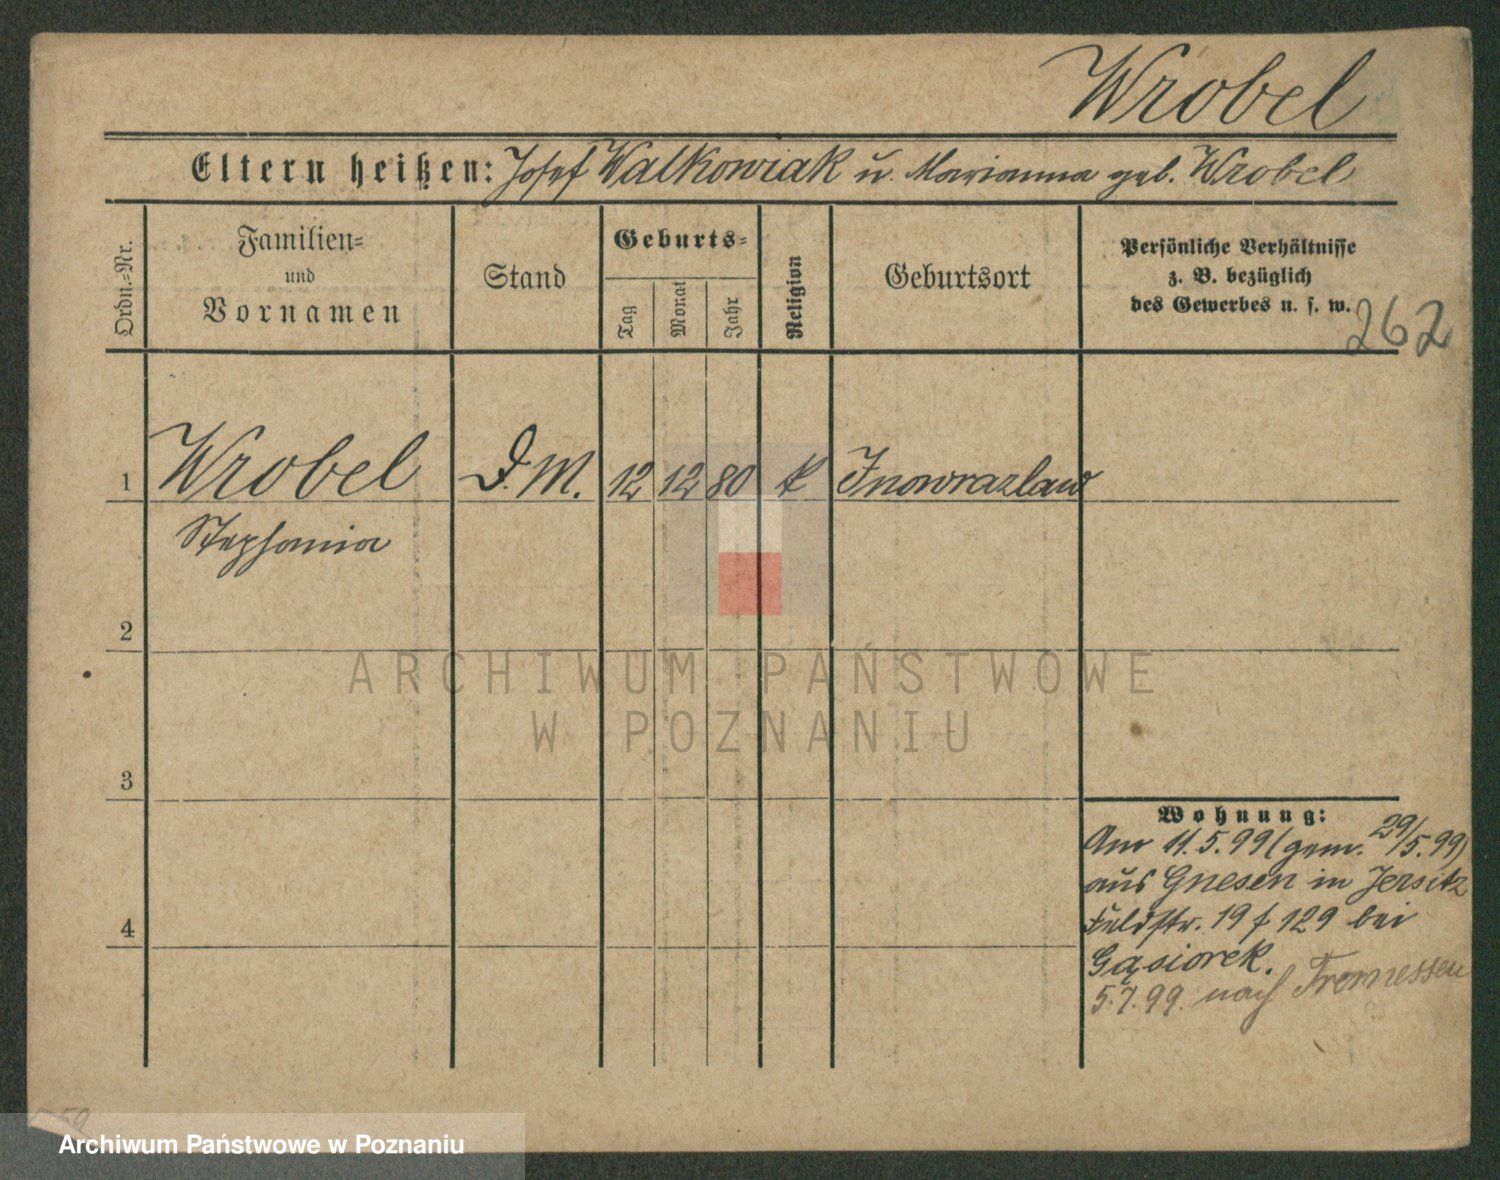 Wrobel
Eltern heißen: Josef Walkowiak u. Marianna geb. Wrobel
Ordn.-Nr.
Familien-
und
Vornamen
Stand
Geburts-
Tag
Monat
Jahr
Religion
Geburtsort
Persönliche Verhältnisse
z. B. bezüglich
des Gewerbes u. s. w.
262
1 Wrobel D. M. 12 12 80 k Inowrazlaw
Stephania
2
3
4
Wohnung:
Am 11.5.99 (gem. 29/5.99)
aus Gnesen in Jersitz
Feldstr. 19 f 129 bei
Gąsiorek.
5.7.99. nach Tremessen
59
ARCHIWUM PAŃSTWOWE
W POZNANIU
Archiwum Państwowe w Poznaniu